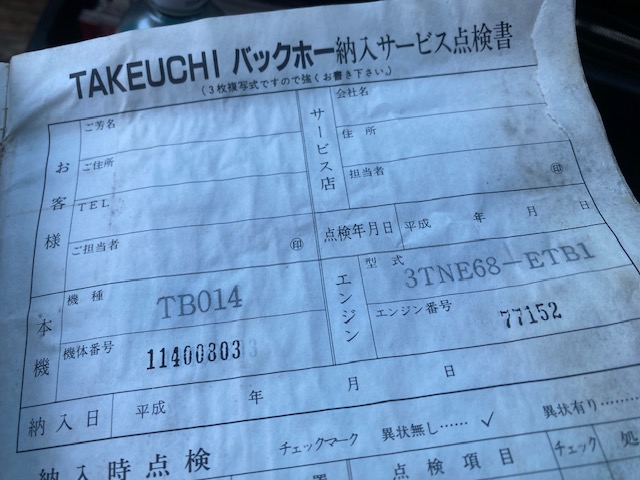 TAKEUCHI バックホー納入サービス点検書
(3枚複写式ですので強くお書き下さい。)
お客様
ご芳名
ご住所
TEL
ご担当者 印
サービス店
会社名
住所
担当者 印
点検年月日 平成 年 月 日
本機
機種 TB014
機体番号 11400303
エンジン
型式 3TNE68-ETB1
エンジン番号 77152
納入日 平成 年 月 日
納入時点検 チェックマーク 異状無し…… ✓ 異状有り……
点検項目 チェック 処